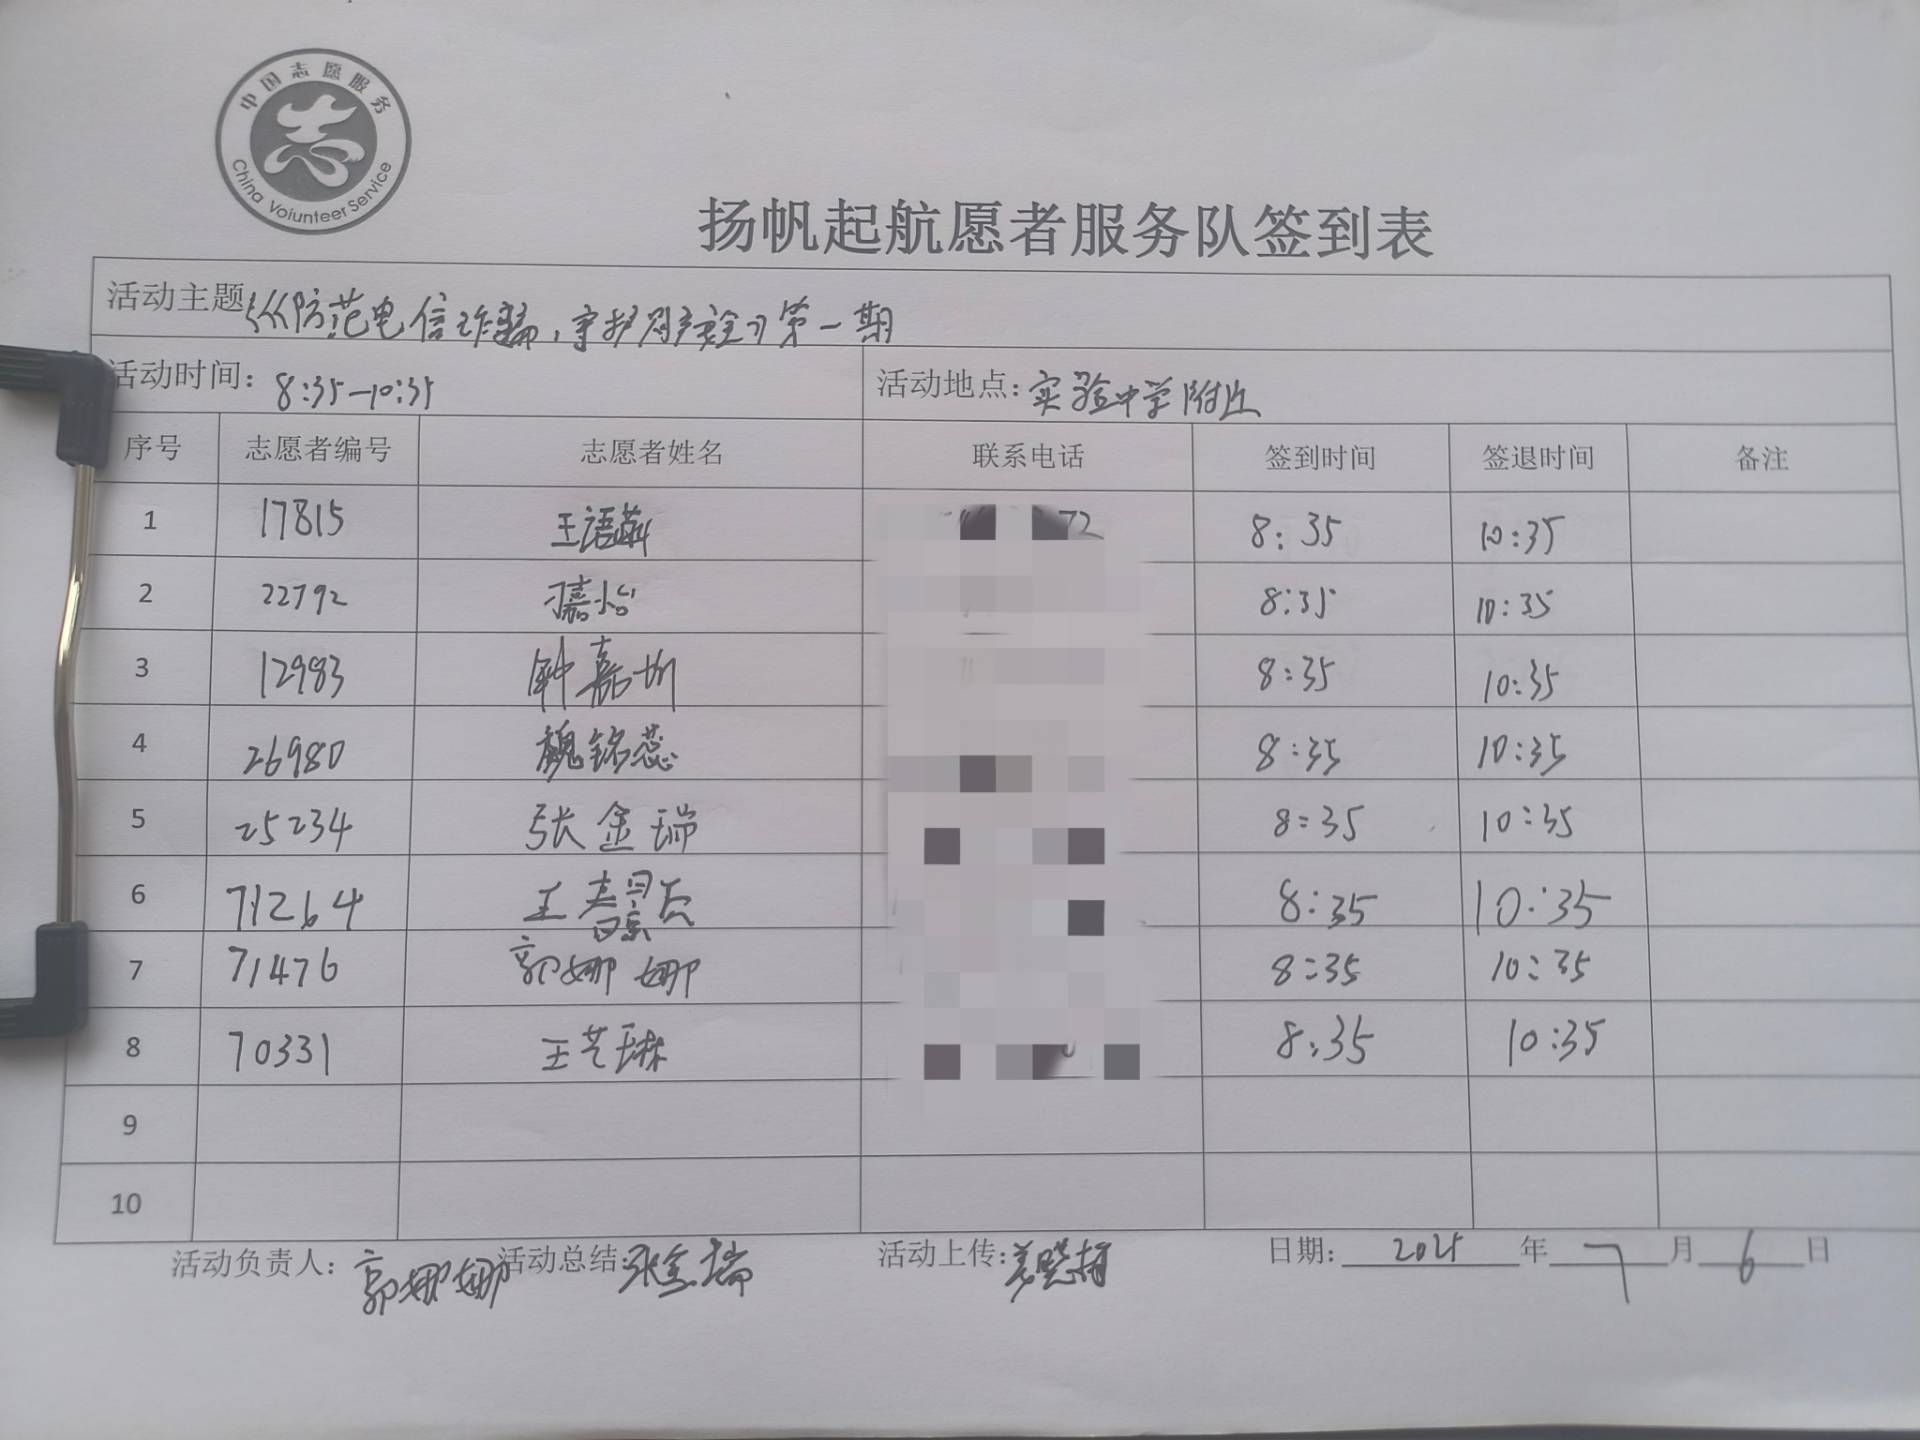 中国志愿服务
China Voiunteer Service
扬帆起航愿者服务队签到表
活动主题《防范电信诈骗,守护财产安全》第一期
活动时间: 8:35-10:35 活动地点: 实验中学附近
序号 志愿者编号 志愿者姓名 联系电话 签到时间 签退时间 备注
1 17815 王语 72 8:35 10:35
2 22792 刁嘉怡 8:35 10:35
3 12983 钟嘉 8:35 10:35
4 26980 魏铭蕊 8:35 10:35
5 25234 张金瑞 8:35 10:35
6 71264 王 8:35 10:35
7 71476 郭娜娜 8:35 10:35
8 70331 王艺琳 8:35 10:35
9
10
活动负责人: 郭娜娜 活动总结: 张金瑞 活动上传: 日期: 2025 年 7 月 6 日